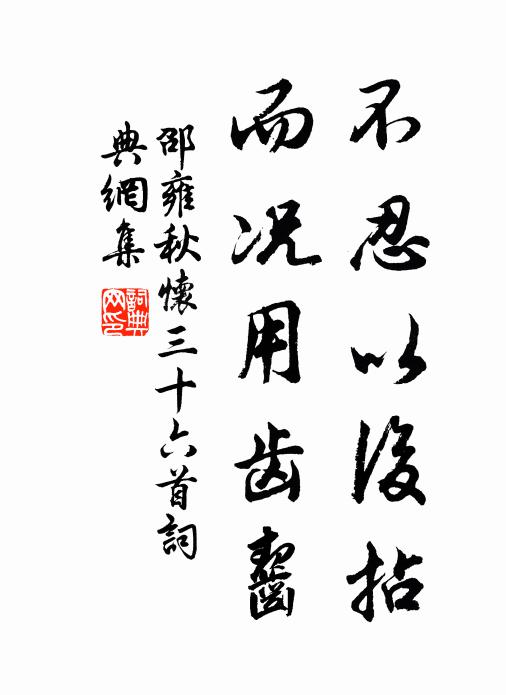 不忍以後拈
而况用齿齧
邵雍秋懷三十六首詞
典網集
詞典
网印